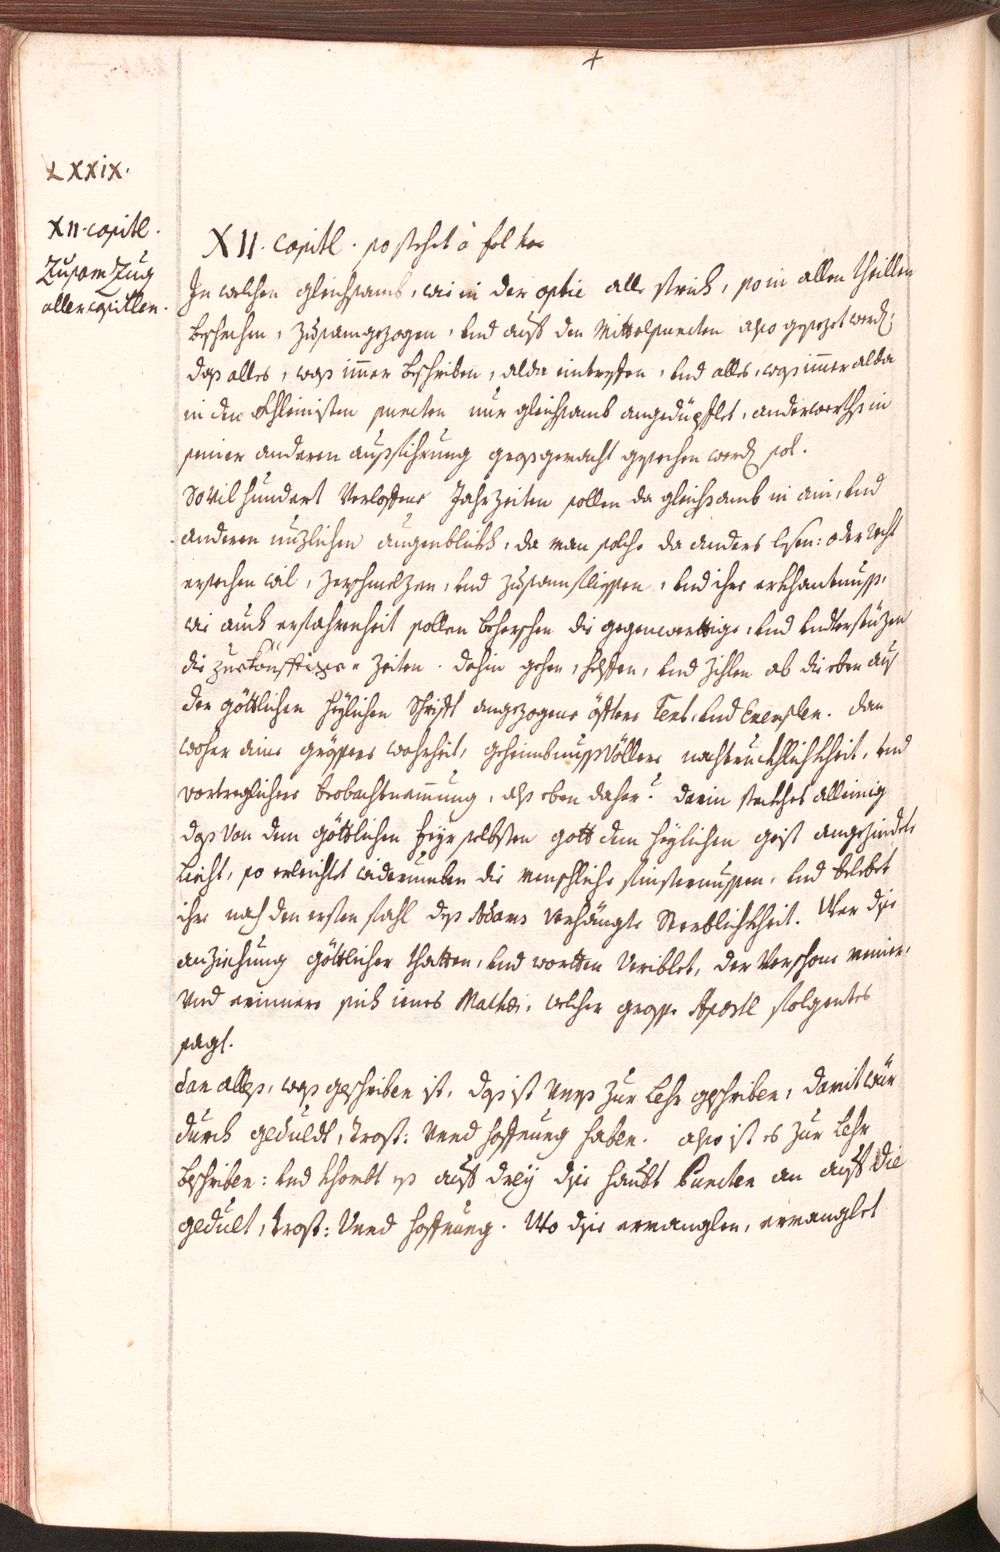 +
LXXIX.
XII. capitl.
Zusam Zug
aller capitlen.
XII. Capitl. so stehet à fol
In welchen gleichsamb, wie in der optic alle strich, so in allen theillen
beschehen, zusamgezogen, und auß den Mittelpuncten also gesezet werd,
daß alles, waß immer beschriben, alda eintreffen, und alles, waß immer alda
in den khleinisten puncten nur gleichsamb angedüpflet, anderwerths in
seiner anderen außfihrung groß gemacht gesechen werd sol.
So vil hundert verloffene Jahr Zeiten sollen da gleichsamb in ain, und
anderen nuzlichen augenblikh, da man solche da anders lesen: oder recht
ersechen wil, zerschmelzen, und zusamfliessen, und ihre erkhantnuß,
wie auch erfahrenheit sollen beherschen die gegenwerttige, und undterstüzen
die zuekönfftige Zeiten. dahin gehen, helffen, und zihlen ab die oben auß
der göttlichen heylichen Schrifft angezogene öfftere Text, und Exemplen. dan
woher eine grössere wahrheit, geheimbnußvöllere nachtruckhlichkheit, und
vortreglichere beobachtnemmung, alß eben daher? darin stecket alleinig
daß von dem göttlichen feyr selbsten gott dem heylichen geist angezindete
Liecht, so erleichtet widerumben die menschliche finsternussen, und belebet
ihre nach den ersten fahl deß Adams verhängte Sterblichkheit. Wer dise
anziehung göttlicher thatten, und wortten veriblet, der verschone meiner,
und erinnere sich ienes Mathei, welcher grosse Apostl folgentes
sagt.
dan alleß, waß geschriben ist, daß ist unß zur Lehr geschriben, damit wür
durch geduldt, trost: unnd hoffnung haben. also ist es zur Lehr
beschriben: und khombt eß auff dreÿ dise haubt Puncten an auff die
gedult, trost: unnd hoffnung. Wo dise ermanglen, ermanglet